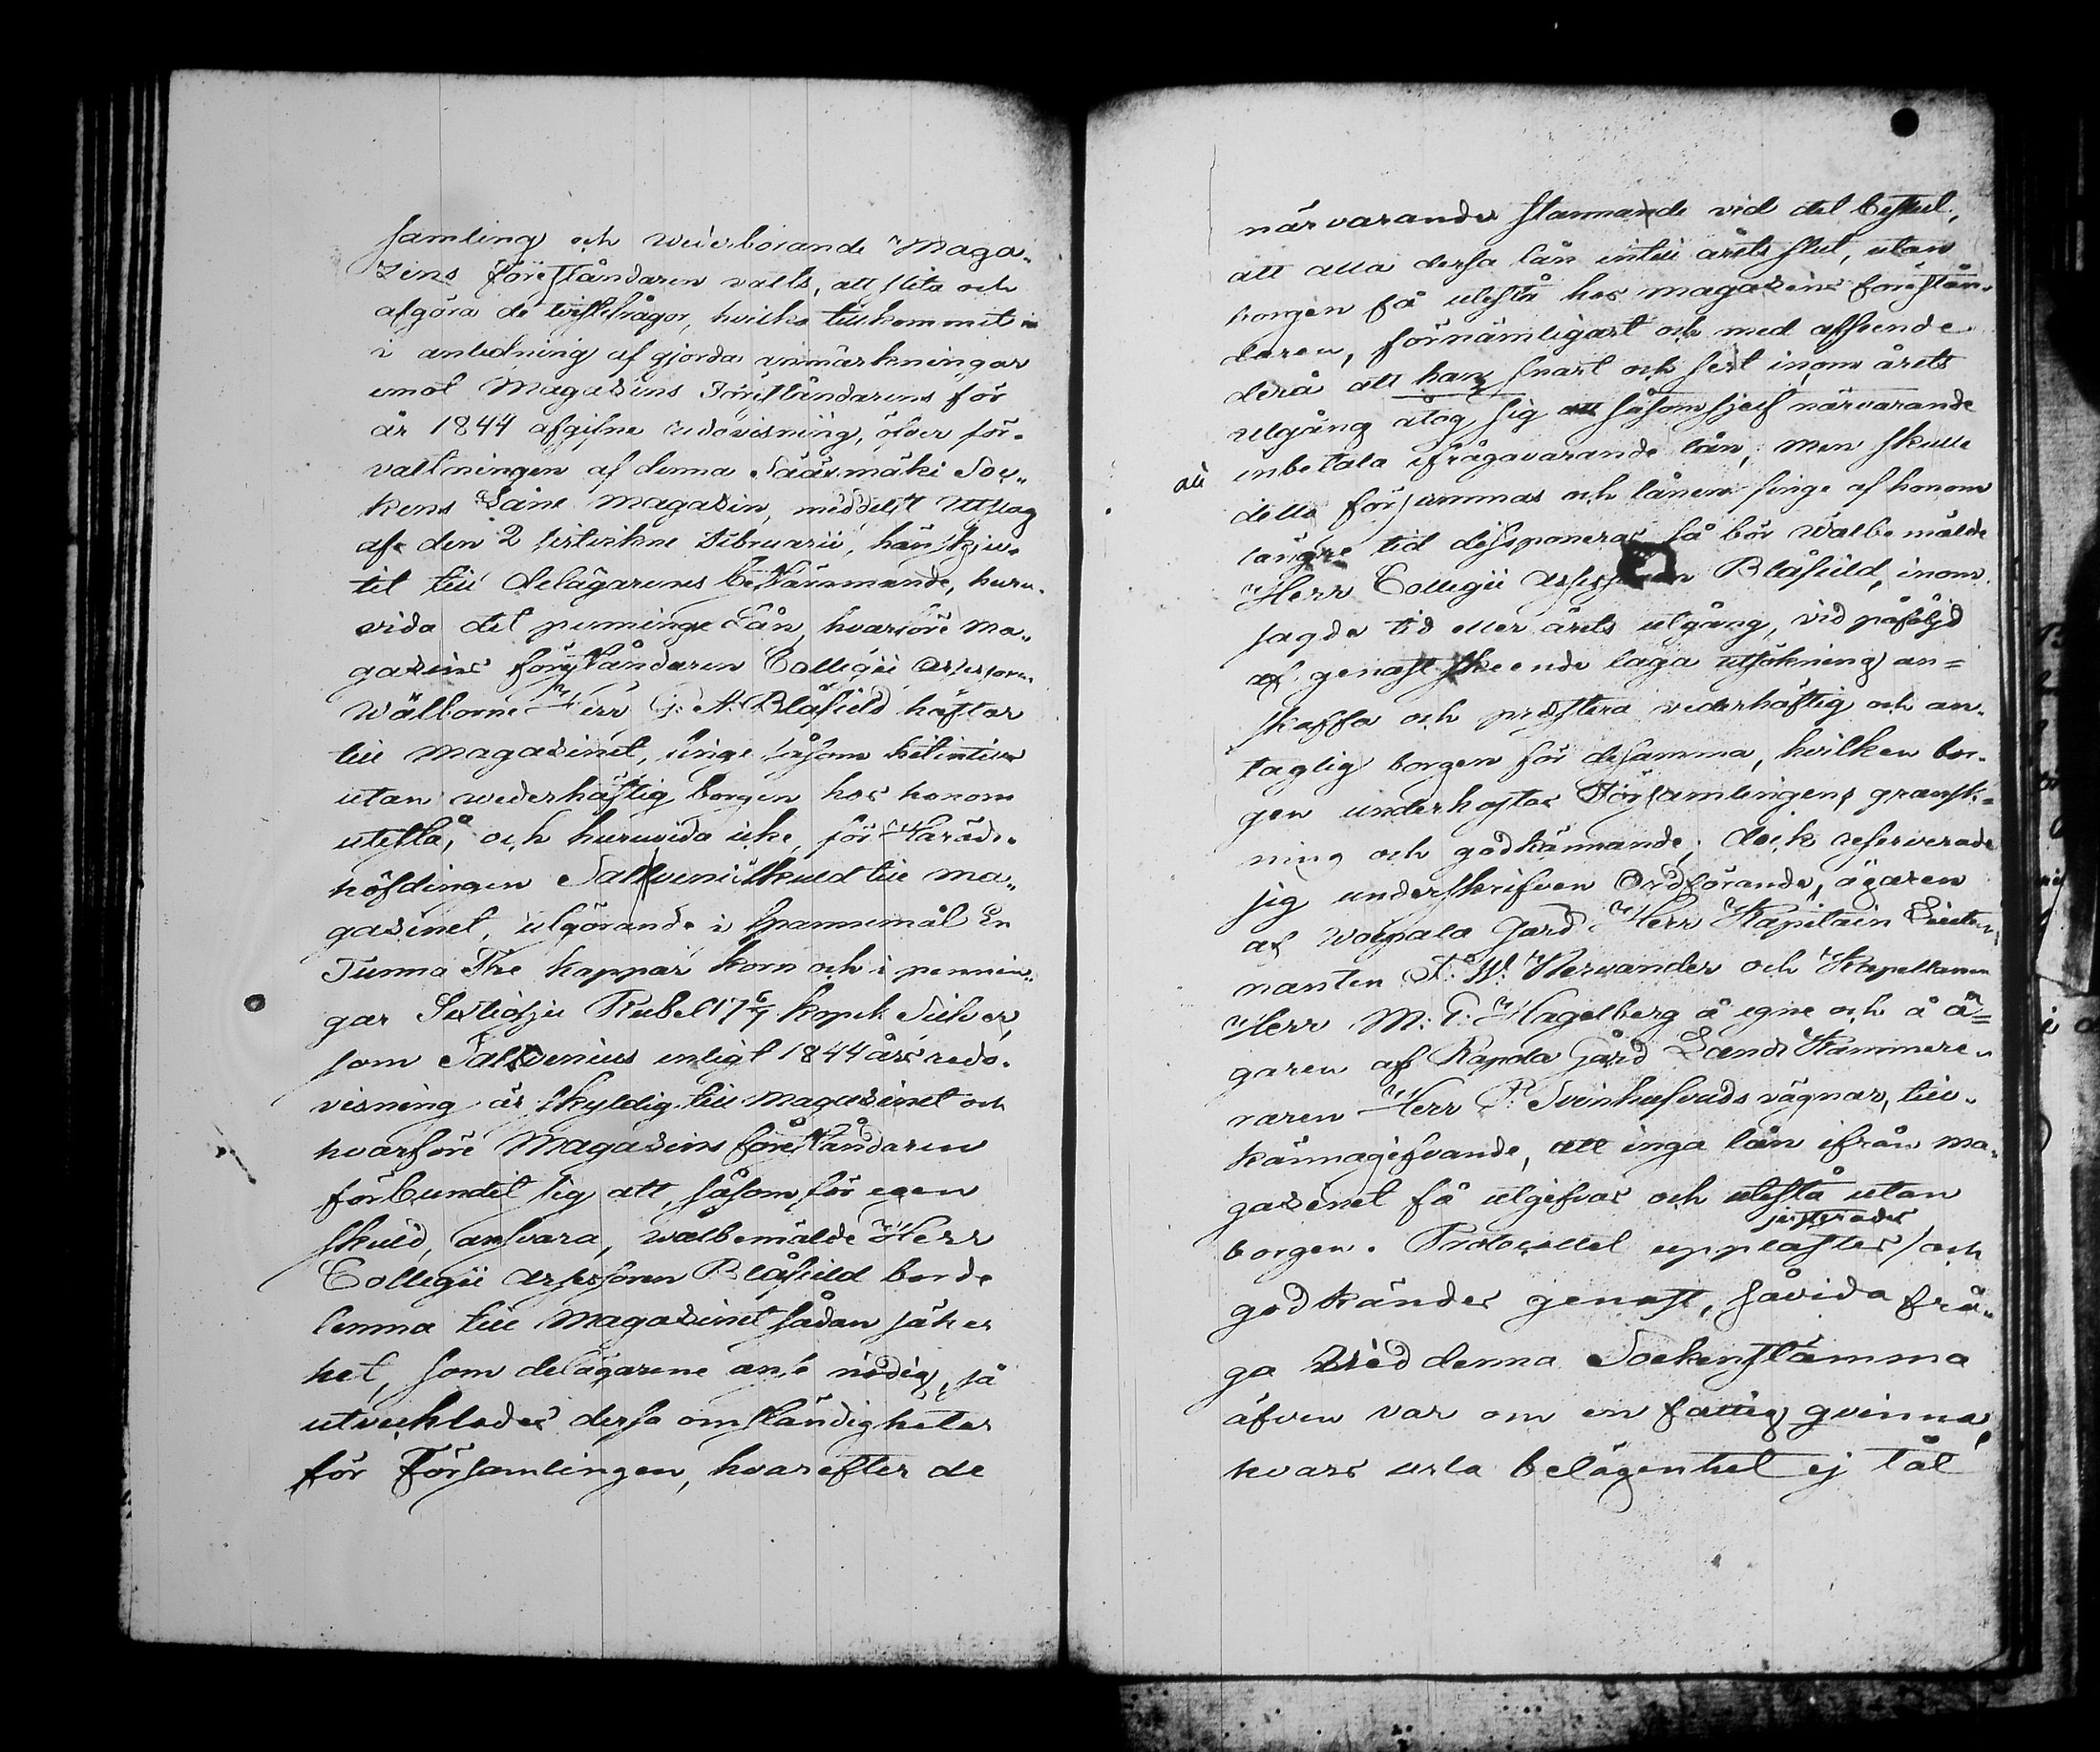 samling och wederbörande Maga„
zins föreståndaren valts, att slita och
afgöra de twistefrågor, hvilka tillkommit
i anledning af gjorda anmärkningar
emot Magazins Föreståndarens för
år 1844 afgifne redovisning, öfver för„
valtningen af denna Sääxmäki Soc„
kens Låne Magazin, meddelst Utslag
af den 2 sistvikne Februarii, hänskju„
tit till delägarenes bestämmande, huru„
vida det penninge Lån, hvarföre Ma„
gazins föreståndaren Collegii Assessorn
Wälborne Herr G: A: Blåfield häftar
till Magazinet, finge såsom hitintills
utan wederhäftig borgen hos honom
utestå, och huruvida icke, för Härads„
höfdingen Sallvenii skuld till Ma„
gazinet, utgörande i Spannemål En
Tunna Tre kappar korn och i pennin„
gar Sextiosju Rubel 17 6/7 kopek Silfver,
som Sallvenius enligt 1844 års redo„
visning är skyldig till Magazinet och
hvarföre Magazins föreståndaren
förbundit sig att, såsom för egen
skuld, ansvara, wälbemälde Herr
Collegii Assessoren Blåfield borde
lemna till Magazinet sådan säker
het, som delägarene anse nödig, så
utvecklades dessa omständigheter
för Församlingen, hvarefter de
närvarande stannande vid det beslut,
att alla dessa lån intill årets slut, utan
borgen få utestå hos magazins förestån„
daren, förnämligast och med afseende
derå att han snart och sist inom årets
utgång åtog sig såsom sjelf närvarande
inbetala ifrågavarande lån, men skulle
detta försummas och lånen finge af honom
längre tid disponeras så bör Wälbemälde
Herr Collegii Assessoren Blåfield, inom
sagde tid eller årets utgång, vid påföljd
af genast skeende laga utsökning an=
skaffa och prestera vederhäftig och an„
taglig borgen för desamma, hvilken bor„
gen underkastas Församlingens gransk„
ning och godkännande; dock reserverade
sig underskrifven Ordförande, ägaren
af Woipala Gård Herr Kapitain Lieute„
nanten A: W: Nervander och Kapellanen
Herr M: T: Hagelberg å egne och å ä=
garen af Rapola Gård Lands Kammere„
raren Herr P: Svinhufvuds vägnar, till„
kännagifvande, att inga lån ifrån ma„
gazinet få utgifvas och utestå utan
justerades
borgen. Protocollet upplästes / och
godkändes genast, såvida frå„
ga wid denna Sockenstämma
äfven var om en fattig qvinna,
hvars usla belägenhet ej tål